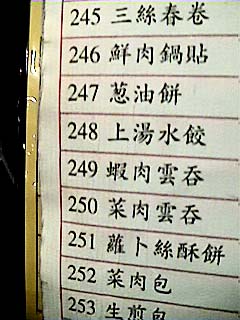 245 三絲春卷
246 鮮肉鍋貼
247 葱油餅
248 上湯水餃
249 蝦肉雲吞
250 菜肉雲吞
251 蘿卜絲酥餅
252 菜肉包
253 生煎包